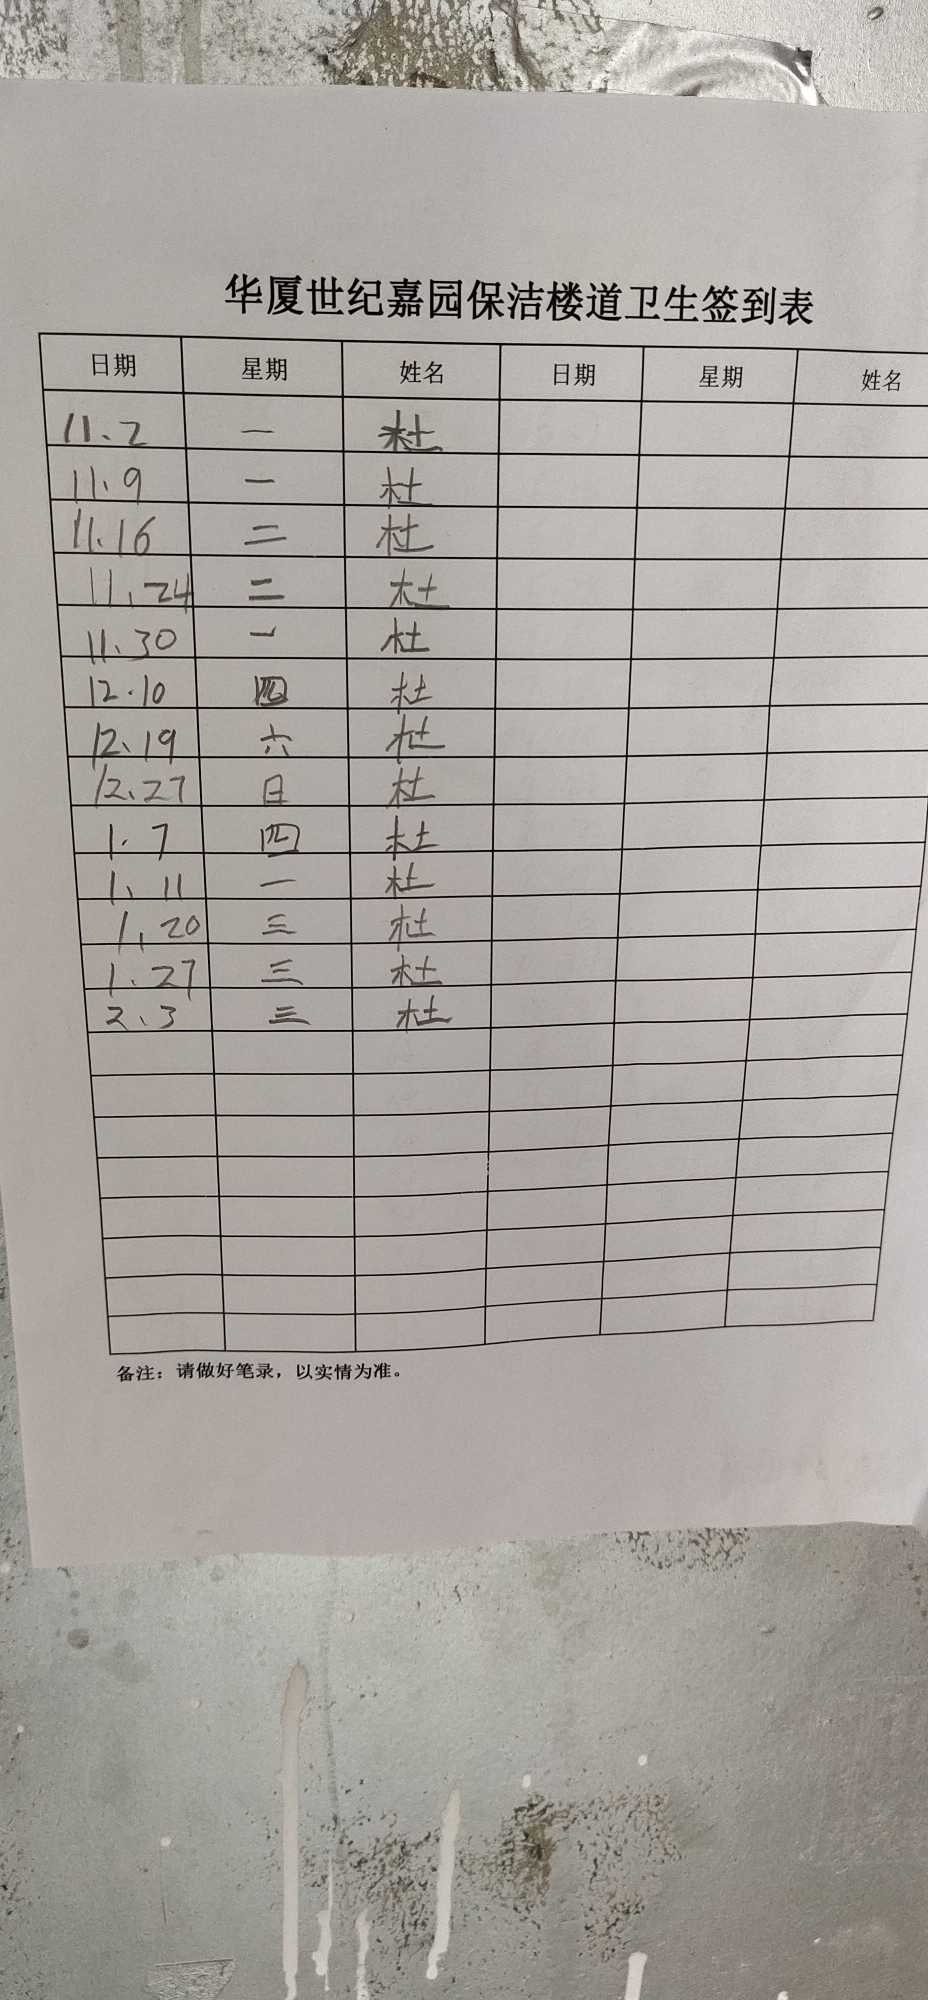 华厦世纪嘉园保洁楼道卫生签到表
日期 星期 姓名 日期 星期 姓名
11、2 一 杜
11、9 一 杜
11.16 二 杜
11.24 二 杜
11.30 一 杜
12.10 四 杜
12、19 六 杜
12.27 日 杜
1.7 四 杜
1、11 一 杜
1,20 三 杜
1.27 三 杜
2、3 三 杜
备注：请做好笔录，以实情为准。